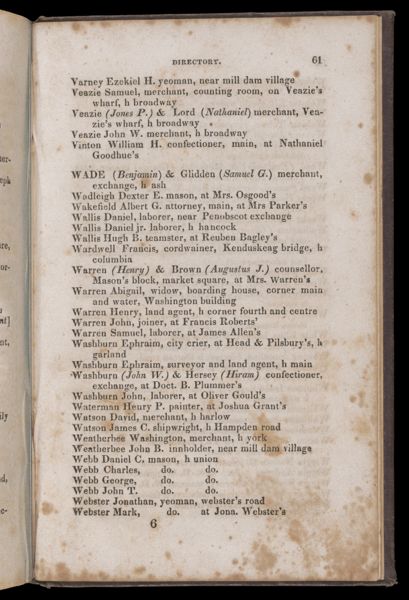 DIRECTORY. 61
Varney Ezekiel H. yeoman, near mill dam village
Veazie Samuel, merchant, counting room, on Veazie's
wharf, h broadway
Veazie (Jones P.) & Lord (Nathaniel) merchant, Vea-
zie's wharf, h broadway
Veazie John W. merchant, h broadway
Vinton William H. confectioner, main, at Nathaniel
Goodhue's
WADE (Benjamin) & Glidden (Samuel G.) merchant,
exchange, h ash
Wadleigh Dexter E. mason, at Mrs. Osgood's
Wakefield Albert G. attorney, main, at Mrs Parker's
Wallis Daniel, laborer, near Penobscot exchange
Wallis Daniel jr. laborer, h hancock
Wallis Hugh B. teamster, at Reuben Bagley's
Wardwell Francis, cordwainer, Kenduskeag bridge, h
columbia
Warren (Henry) & Brown (Augustus J.) counsellor,
Mason's block, market square, at Mrs. Warren's
Warren Abigail, widow, boarding house, corner main
and water, Washington building
Warren Henry, land agent, h corner fourth and centre
Warren John, joiner, at Francis Roberts'
Warren Samuel, laborer, at James Allen's
Washburn Ephraim, city crier, at Head & Pilsbury's, h
garland
Washburn Ephraim, surveyor and land agent, h main
Washburn (John W.) & Hersey (Hiram) confectioner,
exchange, at Doct. B. Plummer's
Washburn John, laborer, at Oliver Gould's
Waterman Henry P. painter, at Joshua Grant's
Watson David, merchant, h harlow
Watson James C. shipwright, h Hampden road
Weatherbee Washington, merchant, h york
Weatherbee John B. innholder, near mill dam village
Webb Daniel C. mason, h union
Webb Charles, do. do.
Webb George, do. do.
Webb John T. do. do.
Webster Jonathan, yeoman, webster's road
Webster Mark, do. at Jona. Webster's
6